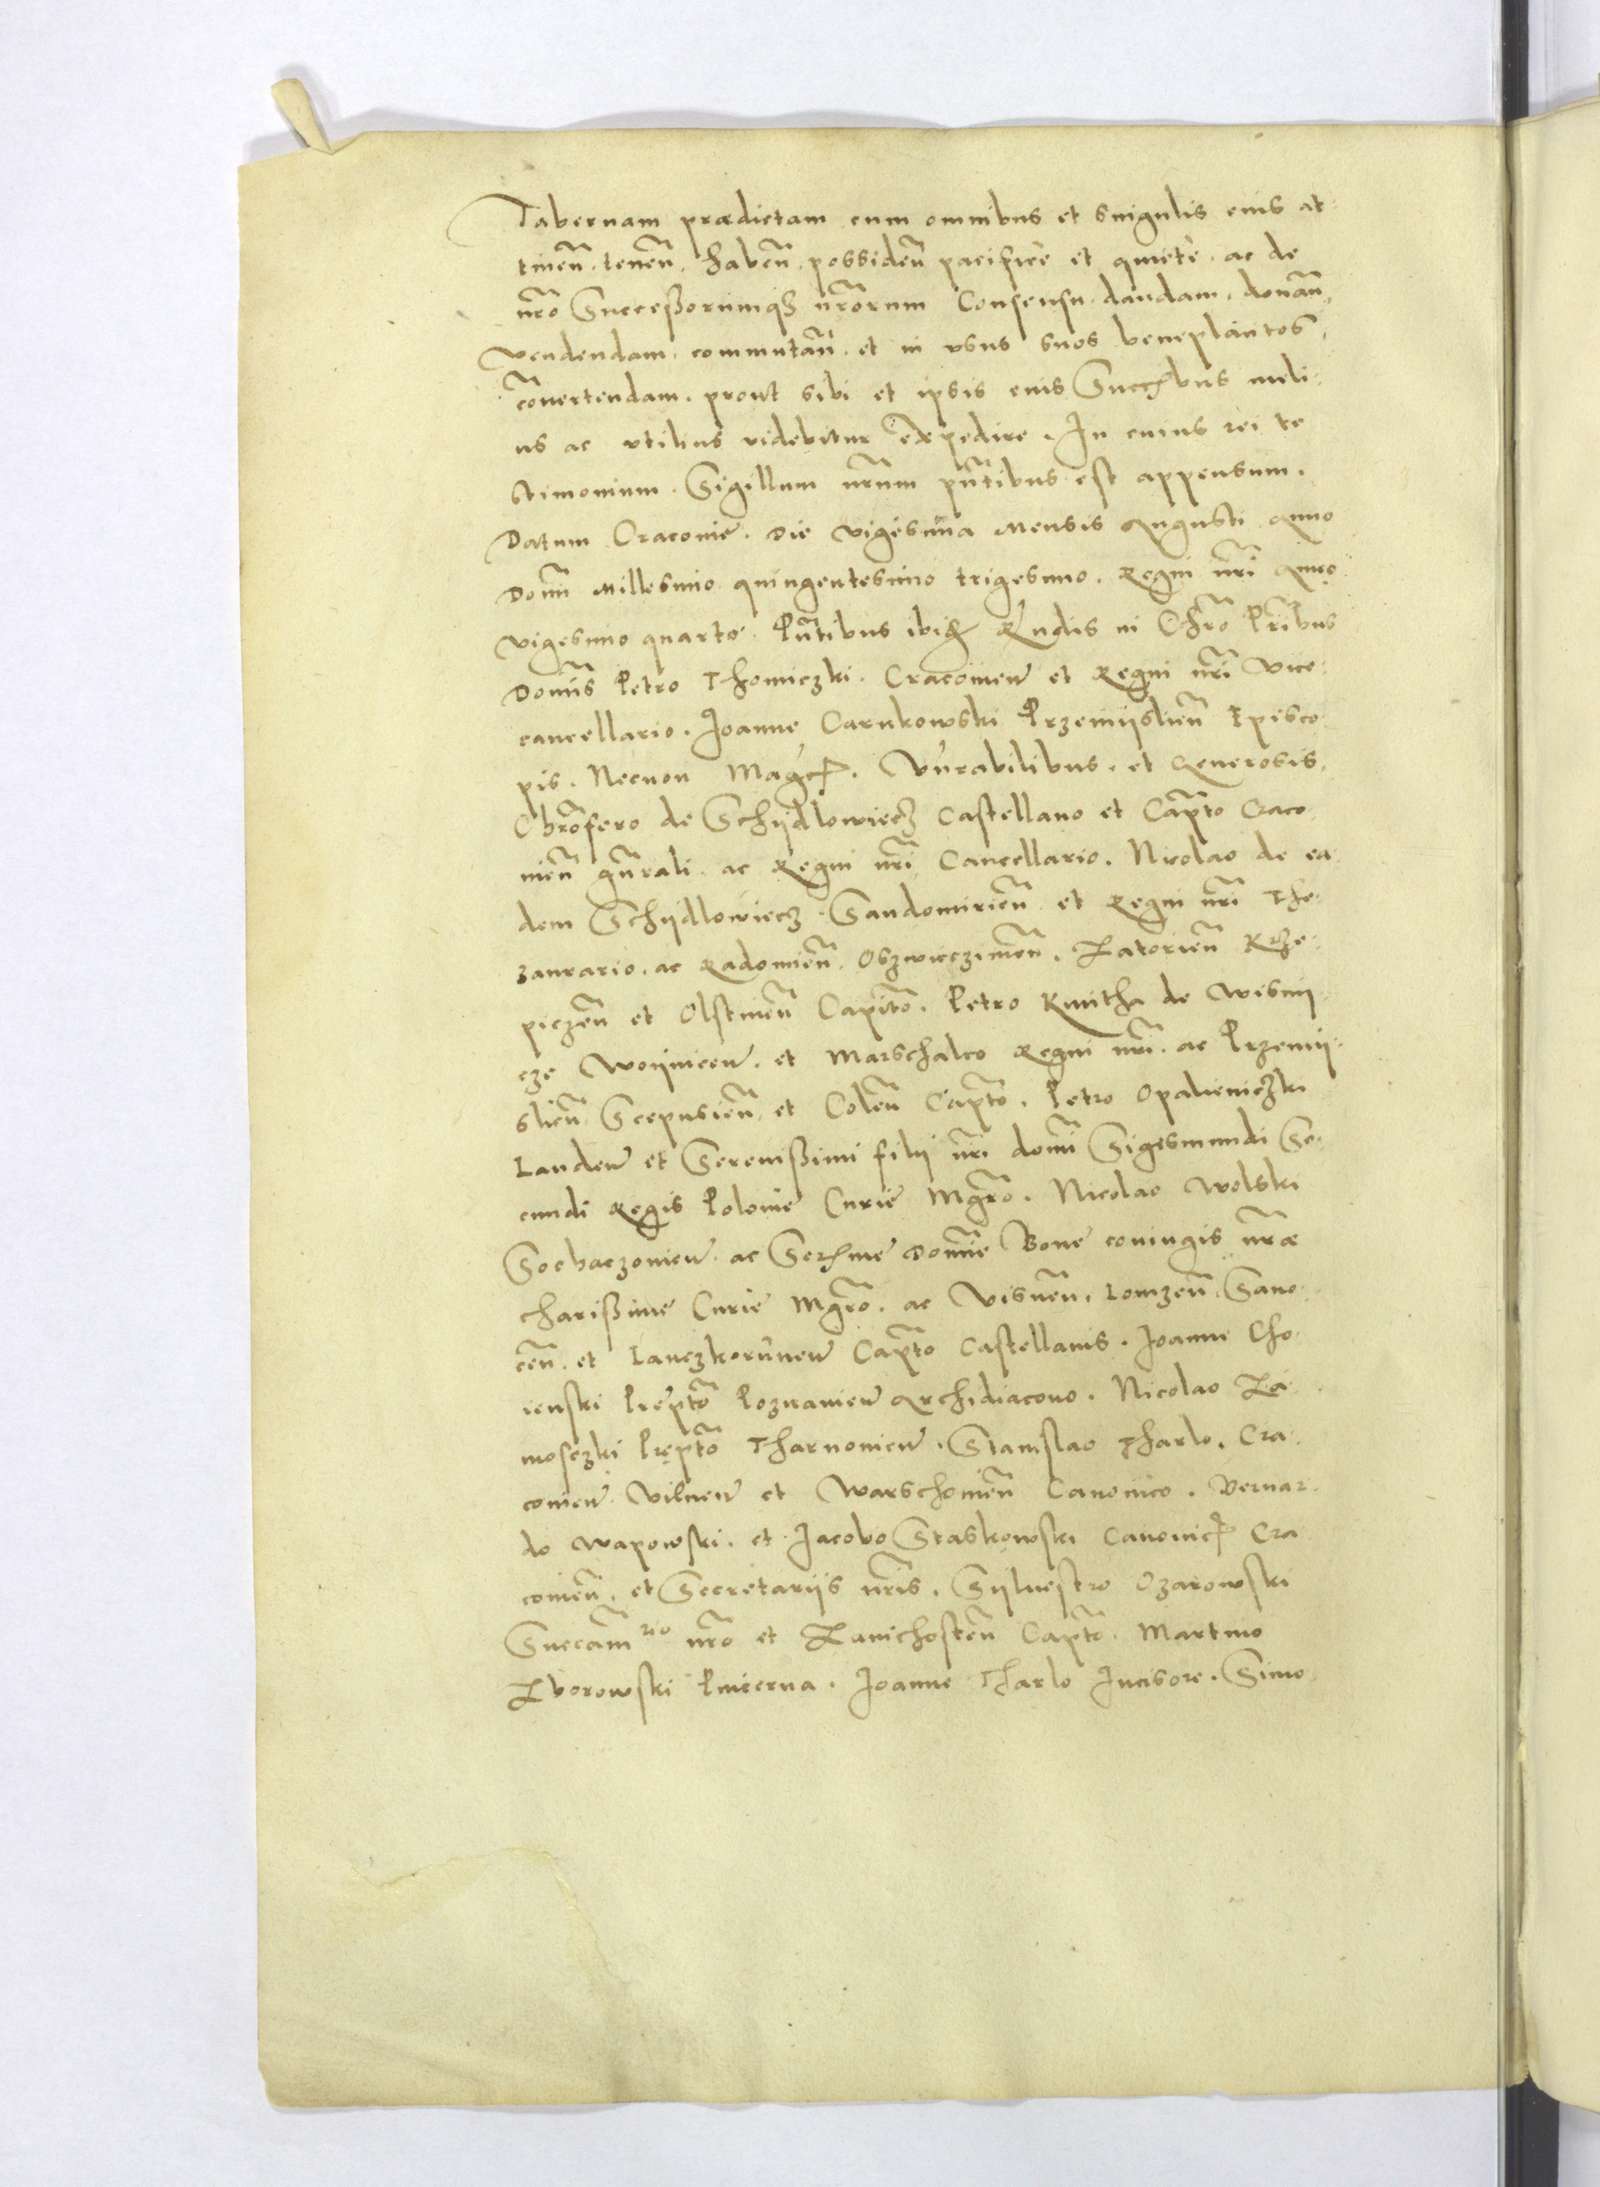 Tabernam prædictam cum omnibus et singulis eius at
tinen̄. tenen̄. haben̄. possiden̄ pacifice et quiete. ac de
nr̄o Successorumq3 nr̄orum Consensu dandam. donan̄
vendendam. commutan̄. et in usus suos beneplacitos
cōvertendam. prout sibi et ipsis eius Succ̄bus meli
us ac utilius videbitur expedire. In cuius rei te
stimonium. Sigillum nr̄um pn̄tibus est appensum.
Datum Cracovie. Die vigesima Mensis Augusti Anno
Domī Millesimo quingentesimo trigesimo. Regni nr̄i Anno
vigesimo quarto. Pn̄tibus ibid. Rn̄dis in Chr̄o Pr̄ibus
Domīs Petro Thomiczki. Cracovien̄ et Regni nr̄i Vice
cancellario. Joanne Carnkowski Przemyslien̄ Episco
pis. Necnon Magcis. Vn̄rabilibus. et Generosis
Chrōfero de Schydlowiecz Castellano et Capt̄o Craco
vien̄ gn̄rali. ac Regni nr̄i Cancellario. Nicolao de ea
dem Schydlowiecz. Sandomirien̄ et Regni nr̄i The
zaurario. ac Radomien̄. Oszwieczimen̄. Zatorien̄ Krze
piczen̄ et Olstinen̄ Capitō. Petro Kmitha de Wisni
cze Woynicen̄. et Marschalco Regni nr̄i. ac Przemy
slien̄ Scepusien̄ et Colen̄ Capt̄o. Petro Opalieniczki
Landen̄ et Serenissimi filii nr̄i domī Sigismundi Se
cundi Regis Polonie Curie Mgr̄o. Nicolao Wolski
Sochaczovien̄. ac Ser̄me Domīe Bone coniugis nr̄æ
charissime Curie Mgr̄o. ac Visnen̄. Lomzen̄ Sano
cen̄. et Lanczkorunen̄ Capt̄o Castellanis. Joanne Cho
ienski Prept̄o Poznanien̄ Archidiacono. Nicolao Za
mosczki Prępt̄o Tharnovien̄. Stanislao Tharlo. Cra
covien̄ Vilnen̄ et Warschovien̄ Canonico. Bernar
do Wapowski. et Jacobo Staskowski Canonicis Cra
covien̄. et Secretariis nr̄is. Sylvestro Ozarowski
Succamrio nr̄o et Zavichosten̄ Capt̄o. Martino
Zborowski Pincerna. Joanne Tharlo Incisore. Simo